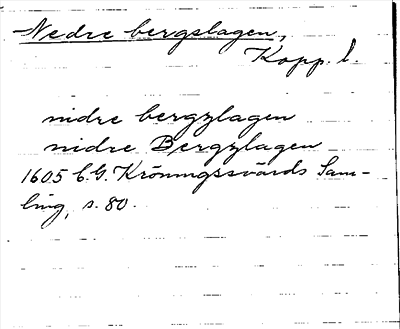 Nedre bergslagen,
Kopp. l.
nidre bergzlagen
nidre Bergzlagen
1605 C.G. Kröningssvärds Sam-
ling, s. 80.